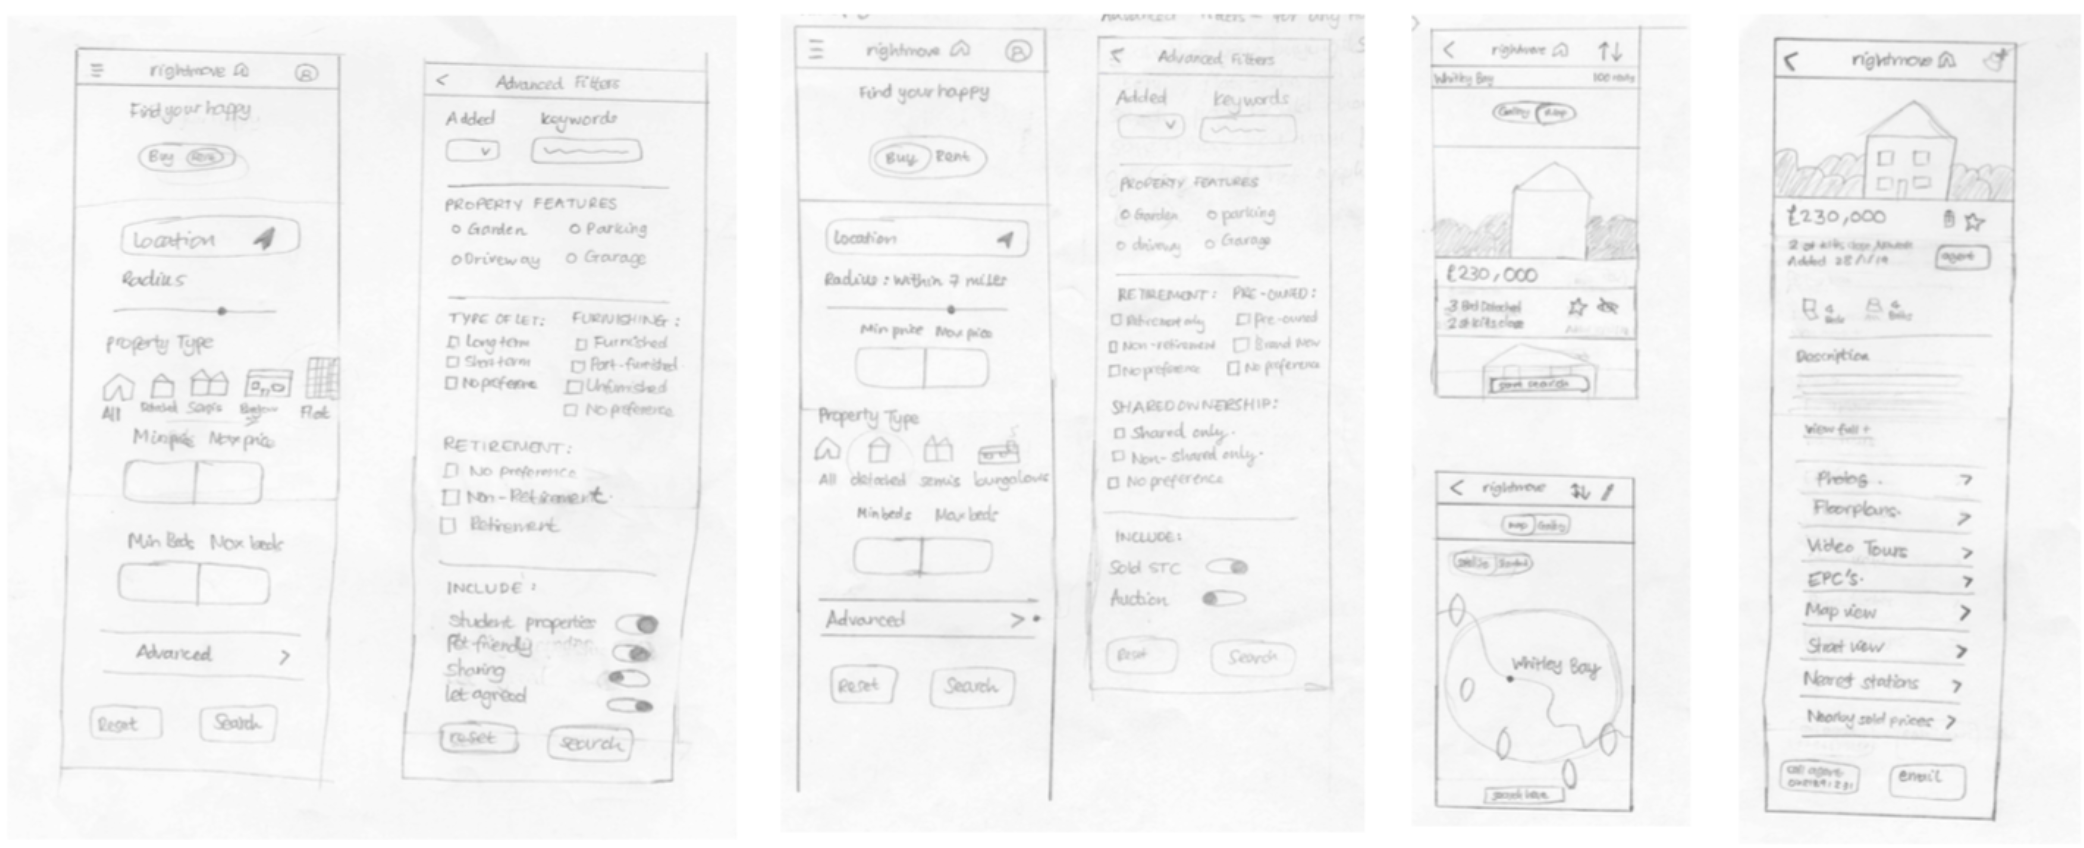 rightmove
Find your happy
Buy Rent
Location
Radius
Property Type
All Detached Semis Flat
Min price Max price
Min Beds Max beds
Advanced >
Reset Search
< Advanced Filters
Added keywords
PROPERTY FEATURES
Garden Parking
Driveway Garage
TYPE OF LET: FURNISHING:
Long term Furnished
Short term Part-furnished
No preference Unfurnished
No preference
RETIREMENT:
No preference
Non-Retirement
Retirement
INCLUDE:
Student properties
Pet friendly
Sharing
let agreed
reset search
rightmove
Find your happy
Buy Rent
Location
Radius: within 7 miles
Min price Max price
Property Type
All detached semis bungalows
Min beds Max beds
Advanced >
Reset Search
Advanced Filters – for any
< Advanced Filters
Added keywords
PROPERTY FEATURES
Garden parking
driveway Garage
RETIREMENT: PRE-OWNED:
Retirement only Pre-owned
Non-retirement Brand New
No preference No preference
SHARED OWNERSHIP:
Shared only.
Non-Shared only.
No preference
INCLUDE:
Sold STC
Auction
Reset Search
< rightmove
Whitley Bay 100
Map
£230,000
3 Bed Detached
2 at kits close
search
< rightmove
map
Whitley Bay
search here
< rightmove
£230,000
2 at kits close,
Added 28/1/19 agent
4 4
Beds
Description
View full +
Photos. >
Floorplans. >
Video Tours >
EPC's. >
Map view >
Street view >
Nearest stations >
Nearby sold prices >
call agent email